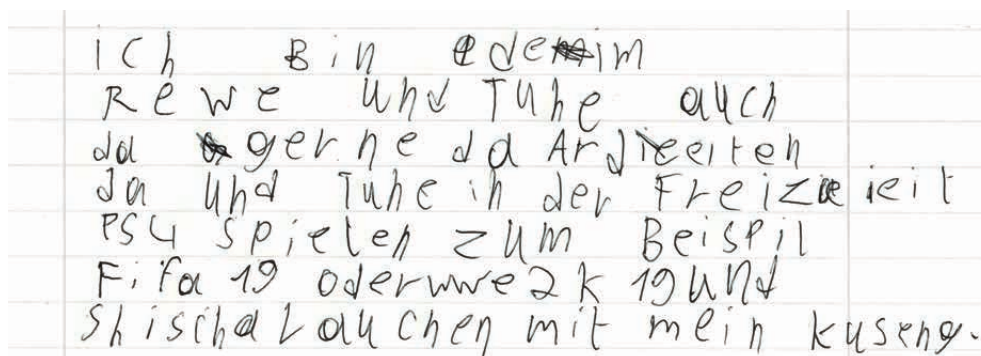 ich Bin edem im
Rewe und Tuhe auch
da gerne da Ardieeiten
da und Tuhe in der Freizeieit
PS4 spielen zum Beispil
Fifa 19 oder wwe2k 19 und
Shischa rauchen mit mein kuseng.